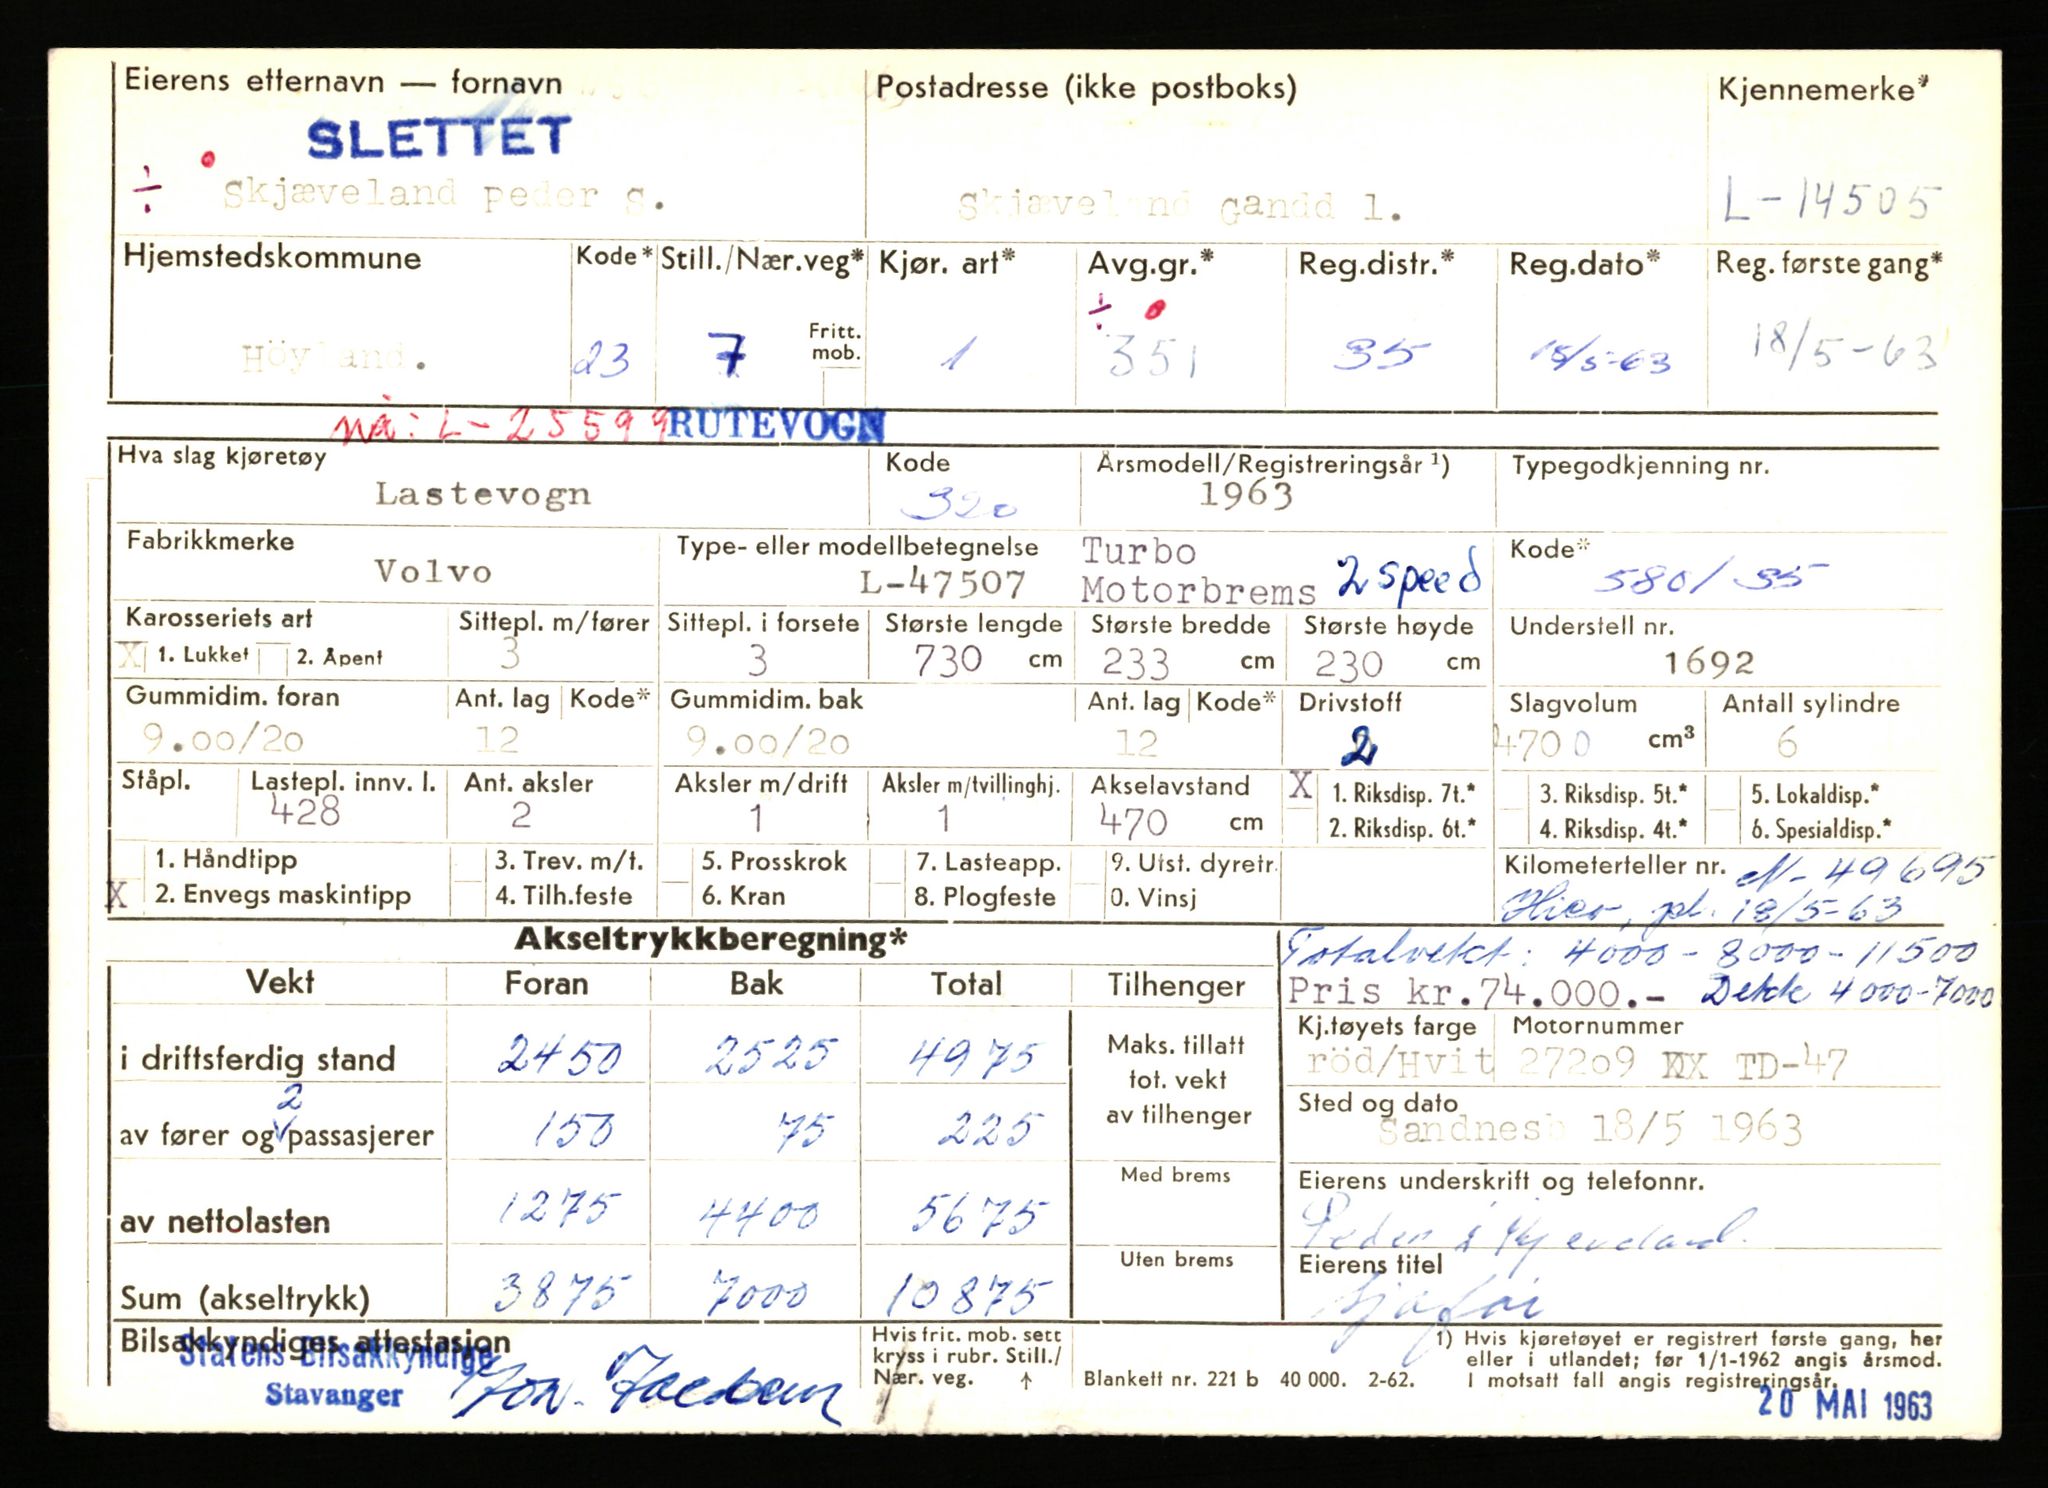 Eierens etternavn — fornavn Postadresse (ikke postboks) Kjennemerke*
SLETTET
÷ Skjæveland peder S. Skjæveland Gandd l. L-14505
Hjemstedskommune Kode* Still./Nær.veg* Kjør. art* Avg.gr.* Reg.distr.* Reg.dato* Reg. første gang*
÷
Fritt. mob.
Höyland. 23 7 1 351 35 18/5-63 18/5-63
nå: L-25599 RUTEVOGN
Hva slag kjøretøy Kode Årsmodell/Registreringsår ¹) Typegodkjenning nr.
Lastevogn 320 1963
Fabrikkmerke Type- eller modellbetegnelse Turbo Kode*
Volvo L-47507 Motorbrems 2 speed 580/35
Karosseriets art Sittepl. m/fører Sittepl. i forsete Største lengde Største bredde Største høyde Understell nr.
X 1. Lukket 2. Åpent 3 3 730 cm 233 cm 230 cm 1692
Gummidim. foran Ant. lag Kode* Gummidim. bak Ant. lag Kode* Drivstoff Slagvolum Antall sylindre
9.00/20 12 9.00/20 12 2 4700 cm³ 6
Ståpl. Lastepl. innv. l. Ant. aksler Aksler m/drift Aksler m/tvillinghj. Akselavstand X 1. Riksdisp. 7t.* 3. Riksdisp. 5t.* 5. Lokaldisp.*
428 2 1 1 470 cm 2. Riksdisp. 6t.* 4. Riksdisp. 4t.* 6. Spesialdisp.*
1. Håndtipp 3. Trev. m/t. 5. Prosskrok 7. Lasteapp. 9. Utst. dyretr. Kilometerteller nr. N-49695
X 2. Envegs maskintipp 4. Tilh.feste 6. Kran 8. Plogfeste 0. Vinsj pl. 18/5-63
Akseltrykkberegning* Totalvekt: 4000-8000-11500
Vekt Foran Bak Total Tilhenger Pris kr.74.000.- Dekk 4000-7000
Kj.tøyets farge Motornummer
i driftsferdig stand 2450 2525 4975 Maks. tillatt röd/Hvit 27209 XX TD-47
tot. vekt
2 Sted og dato
av fører og passasjerer 150 75 225 av tilhenger Sandnes 18/5 1963
Med brems Eierens underskrift og telefonnr.
av nettolasten 1275 4400 5675 Peder S Skjæveland.
Uten brems Eierens titel
Sum (akseltrykk) 3875 7000 10875 Sjåfør
Bilsakkyndiges attestasjon Hvis frit. mob. sett 1) Hvis kjøretøyet er registrert første gang, her
Statens Bilsakkyndige kryss i rubr. Still./ eller i utlandet; før 1/1-1962 angis årsmod.
Stavanger Nær. veg. ↑ Blankett nr. 221 b 40 000. 2-62. I motsatt fall angis registreringsår.
20 MAI 1963